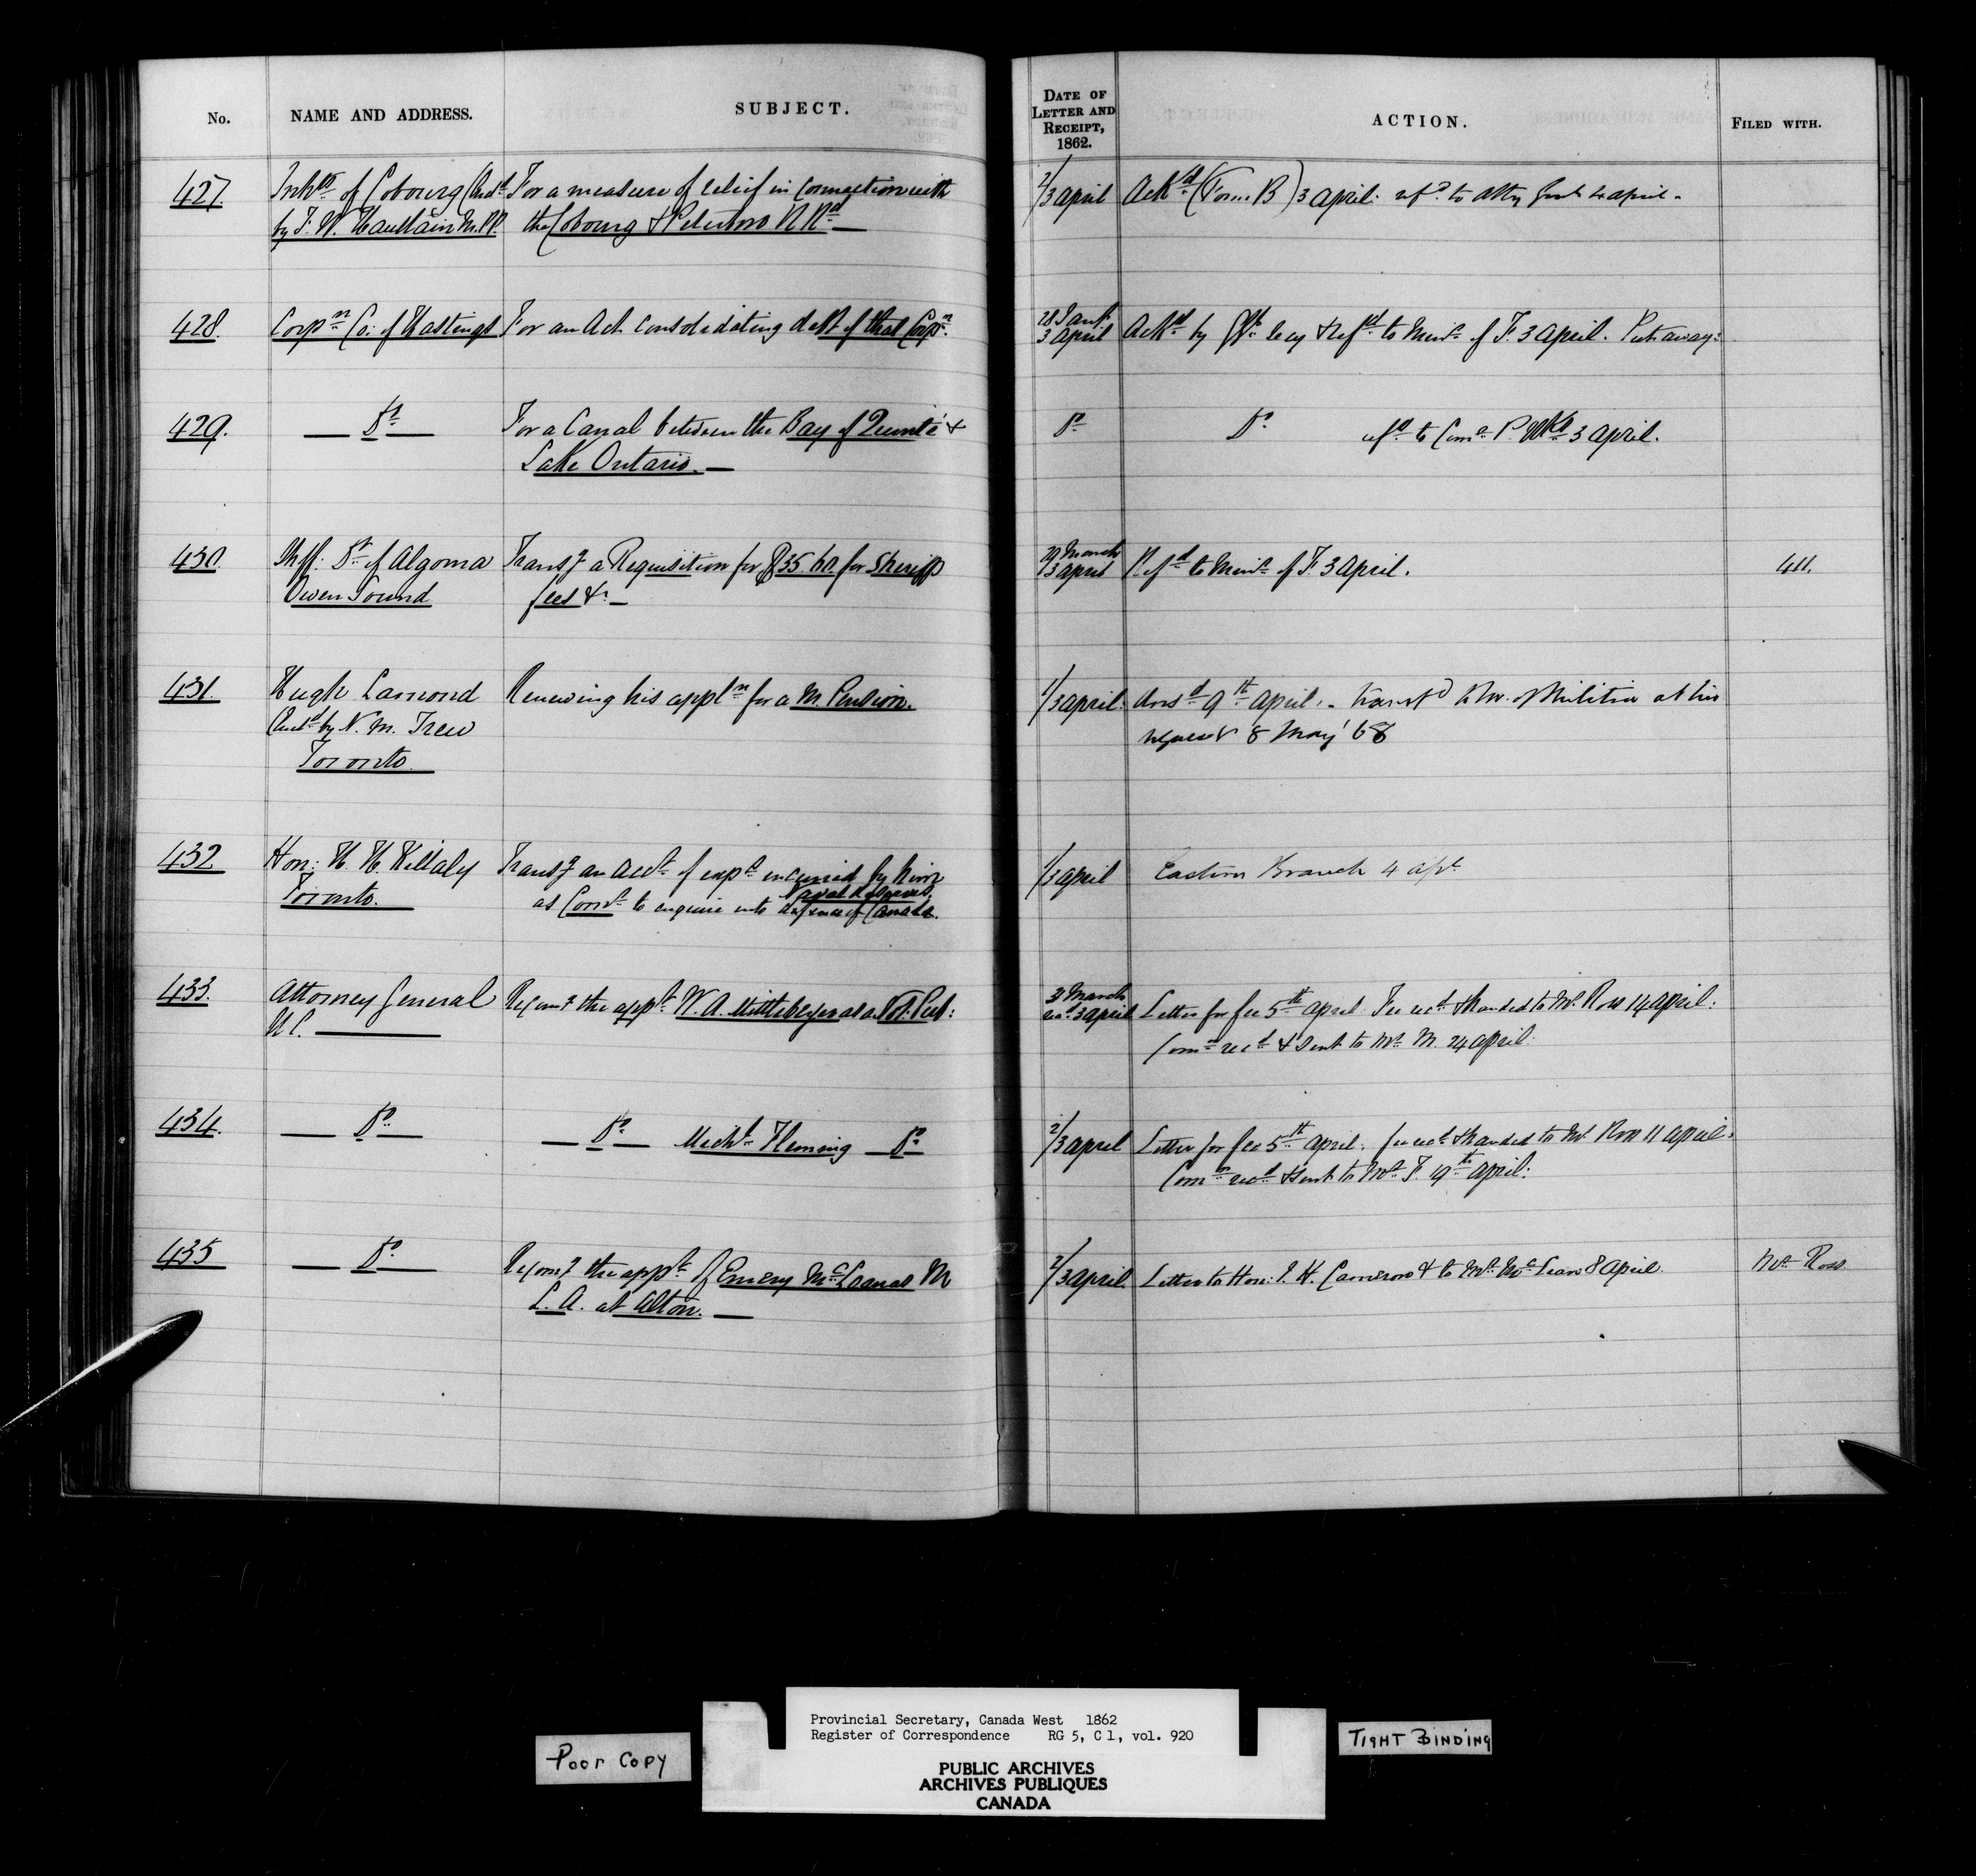 No.
NAME AND ADDRESS.
SUBJECT.
DATE OF
LETTER AND
RECEIPT,
1862.
ACTION.
FILED WITH.
427.
Inhts of Cobourg (
For a measure of relief in Connection with
by F. W. Haultain M.P.P.
the Cobourg & Peterboro R Rd
2/3 april
Ackd (Form B) 3 april: refd to Atty Genl 4 april.
428.
Corpn Co: of Hastings
For an Act Consolidating debt of that Corpn.
28 Jany
3 April
Ackd by & refd to Minr of F. 3 April. Put away:
429.
Do
For a Canal between the Bay of Quinté &
Lake Ontario.
Do
Do
refd to Comr P. Wks 3 April.
430.
Shff: Dt of Algoma
Owen Sound
Transg a Requisition for $35.60. for Sheriff
fees &c
29 March
3 april
Refd to Minr of F. 3 April.
411.
431.
Hugh Lamond
by N. M. Trew
Toronto
Renewing his appln for a M. Pension.
1/3 april:
Ansd 9th april. - transfd to M. of Militia at his
request 8 May '68
432
Hon: H. H. Killaly
Toronto.
Transg an Acct of expt incurred by him
as Comr to enquire into Naval defences,
defence of Canada.
1/3 april
Eastern Branch 4 apl
433.
Attorney General
U.C.
Recomg the appt W. A. Mittleberger as a Not. Pub:
31 March
recd 3 april
Letter for fee 5th april. Fee recd & handed to Mr Ross 14 april:
Comn recd & sent to Mr M. 24 april.
434.
Do
Do Michl Fleming Do
2/3 april
Letter for fee 5th april: fee recd & handed to Mr Ross 11 april.
Comn recd & sent to Mr F. 19th april:
435
Do
Recomg the appt of Emery McLanas M
L. A. at Alton.
2/3 april.
Letter to Hon: J. H. Cameron & to Mr 8 April.
Mr Ross
POOR COPY
Provincial Secretary, Canada West 1862
Register of Correspondence RG 5, C 1, vol. 920
PUBLIC ARCHIVES
ARCHIVES PUBLIQUES
CANADA
TIGHT BINDING